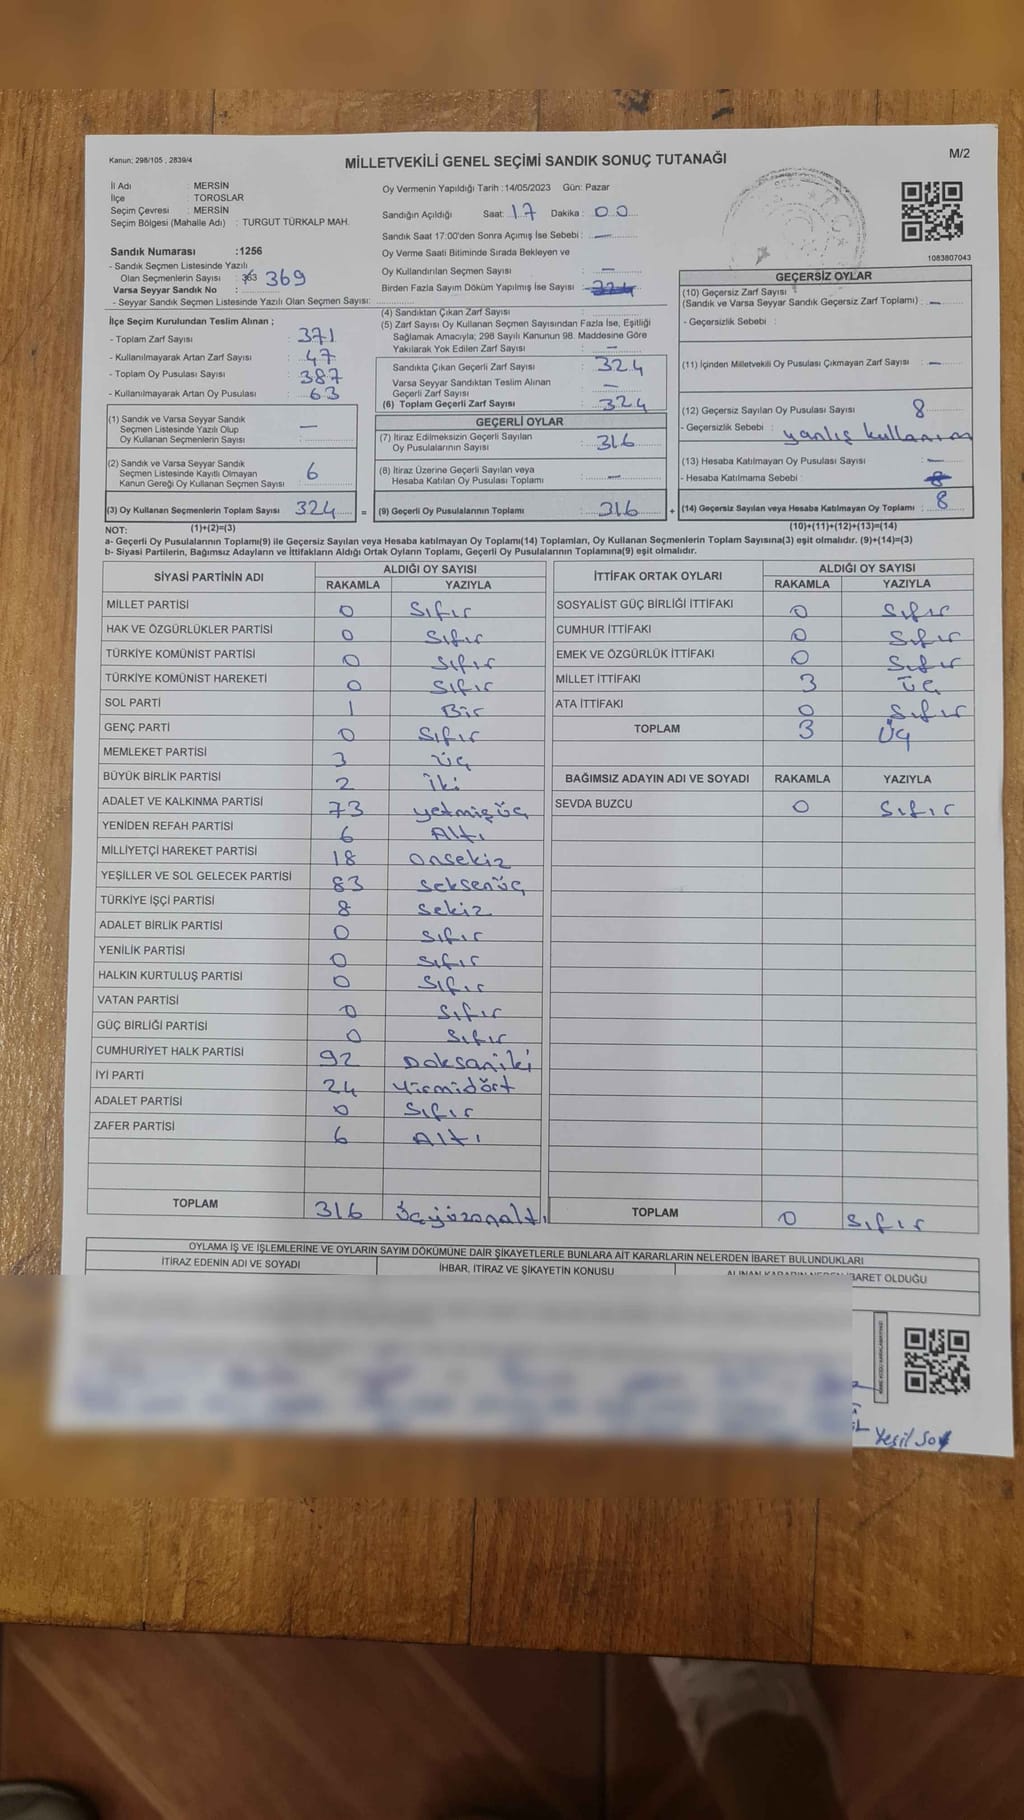 Kanun; 298/105 , 2839/4
MİLLETVEKİLİ GENEL SEÇİMİ SANDIK SONUÇ TUTANAĞI
M/2
İl Adı : MERSİN
İlçe : TOROSLAR
Seçim Çevresi : MERSİN
Seçim Bölgesi (Mahalle Adı) : TURGUT TÜRKALP MAH.
Sandık Numarası :1256
- Sandık Seçmen Listesinde Yazılı
Olan Seçmenlerin Sayısı : 363 369
Varsa Seyyar Sandık No :
- Seyyar Sandık Seçmen Listesinde Yazılı Olan Seçmen Sayısı:
Oy Vermenin Yapıldığı Tarih :14/05/2023 Gün: Pazar
Sandığın Açıldığı Saat: 17 Dakika : 00
Sandık Saat 17:00'den Sonra Açımış İse Sebebi : —
Oy Verme Saati Bitiminde Sırada Bekleyen ve
Oy Kullandırılan Seçmen Sayısı : —
Birden Fazla Sayım Döküm Yapılmış İse Sayısı : 324
1083807043
İlçe Seçim Kurulundan Teslim Alınan ;
- Toplam Zarf Sayısı : 371
- Kullanılmayarak Artan Zarf Sayısı : 47
- Toplam Oy Pusulası Sayısı : 387
- Kullanılmayarak Artan Oy Pusulası : 63
(1) Sandık ve Varsa Seyyar Sandık
Seçmen Listesinde Yazılı Olup
Oy Kullanan Seçmenlerin Sayısı : —
(2) Sandık ve Varsa Seyyar Sandık
Seçmen Listesinde Kayıtlı Olmayan
Kanun Gereği Oy Kullanan Seçmen Sayısı : 6
(3) Oy Kullanan Seçmenlerin Toplam Sayısı : 324 =
(4) Sandıktan Çıkan Zarf Sayısı :
(5) Zarf Sayısı Oy Kullanan Seçmen Sayısından Fazla İse, Eşitliği
Sağlamak Amacıyla; 298 Sayılı Kanunun 98. Maddesine Göre
Yakılarak Yok Edilen Zarf Sayısı : —
Sandıkta Çıkan Geçerli Zarf Sayısı : 324
Varsa Seyyar Sandıktan Teslim Alınan
Geçerli Zarf Sayısı : —
(6) Toplam Geçerli Zarf Sayısı : 324
GEÇERLİ OYLAR
(7) İtiraz Edilmeksizin Geçerli Sayılan
Oy Pusulalarının Sayısı : 316
(8) İtiraz Üzerine Geçerli Sayılan veya
Hesaba Katılan Oy Pusulası Toplamı : —
(9) Geçerli Oy Pusulalarının Toplamı : 316 +
GEÇERSİZ OYLAR
(10) Geçersiz Zarf Sayısı
(Sandık ve Varsa Seyyar Sandık Geçersiz Zarf Toplamı) : —
- Geçersizlik Sebebi :
(11) İçinden Milletvekili Oy Pusulası Çıkmayan Zarf Sayısı : —
(12) Geçersiz Sayılan Oy Pusulası Sayısı : 8
- Geçersizlik Sebebi : yanlış kullanım
(13) Hesaba Katılmayan Oy Pusulası Sayısı : —
- Hesaba Katılmama Sebebi : 8
(14) Geçersiz Sayılan veya Hesaba Katılmayan Oy Toplamı : 8
NOT: (1)+(2)=(3) (10)+(11)+(12)+(13)=(14)
a- Geçerli Oy Pusulalarının Toplamı(9) ile Geçersiz Sayılan veya Hesaba katılmayan Oy Toplamı(14) Toplamları, Oy Kullanan Seçmenlerin Toplam Sayısına(3) eşit olmalıdır. (9)+(14)=(3)
b- Siyasi Partilerin, Bağımsız Adayların ve İttifakların Aldığı Ortak Oyların Toplamı, Geçerli Oy Pusulalarının Toplamına(9) eşit olmalıdır.
SİYASİ PARTİNİN ADI ALDIĞI OY SAYISI
RAKAMLA YAZIYLA
MİLLET PARTİSİ 0 Sıfır
HAK VE ÖZGÜRLÜKLER PARTİSİ 0 Sıfır
TÜRKİYE KOMÜNİST PARTİSİ 0 Sıfır
TÜRKİYE KOMÜNİST HAREKETİ 0 Sıfır
SOL PARTİ 1 Bir
GENÇ PARTİ 0 Sıfır
MEMLEKET PARTİSİ 3 üç
BÜYÜK BİRLİK PARTİSİ 2 İki
ADALET VE KALKINMA PARTİSİ 73 yetmişüç
YENİDEN REFAH PARTİSİ 6 Altı
MİLLİYETÇİ HAREKET PARTİSİ 18 onsekiz
YEŞİLLER VE SOL GELECEK PARTİSİ 83 seksenüç
TÜRKİYE İŞÇİ PARTİSİ 8 sekiz
ADALET BİRLİK PARTİSİ 0 sıfır
YENİLİK PARTİSİ 0 sıfır
HALKIN KURTULUŞ PARTİSİ 0 sıfır
VATAN PARTİSİ 0 sıfır
GÜÇ BİRLİĞİ PARTİSİ 0 Sıfır
CUMHURİYET HALK PARTİSİ 92 Doksaniki
İYİ PARTİ 24 Yirmidört
ADALET PARTİSİ 0 Sıfır
ZAFER PARTİSİ 6 Altı
TOPLAM 316 Üçyüzonaltı
İTTİFAK ORTAK OYLARI ALDIĞI OY SAYISI
RAKAMLA YAZIYLA
SOSYALİST GÜÇ BİRLİĞİ İTTİFAKI 0 Sıfır
CUMHUR İTTİFAKI 0 Sıfır
EMEK VE ÖZGÜRLÜK İTTİFAKI 0 Sıfır
MİLLET İTTİFAKI 3 üç
ATA İTTİFAKI 0 Sıfır
TOPLAM 3 Üç
BAĞIMSIZ ADAYIN ADI VE SOYADI RAKAMLA YAZIYLA
SEVDA BUZCU 0 Sıfır
TOPLAM 0 Sıfır
OYLAMA İŞ VE İŞLEMLERİNE VE OYLARIN SAYIM DÖKÜMÜNE DAİR ŞİKAYETLERLE BUNLARA AİT KARARLARIN NELERDEN İBARET BULUNDUKLARI
İTİRAZ EDENİN ADI VE SOYADI İHBAR, İTİRAZ VE ŞİKAYETİN KONUSU ALINAN KARARIN NEDEN İBARET OLDUĞU
Yeşil Sol